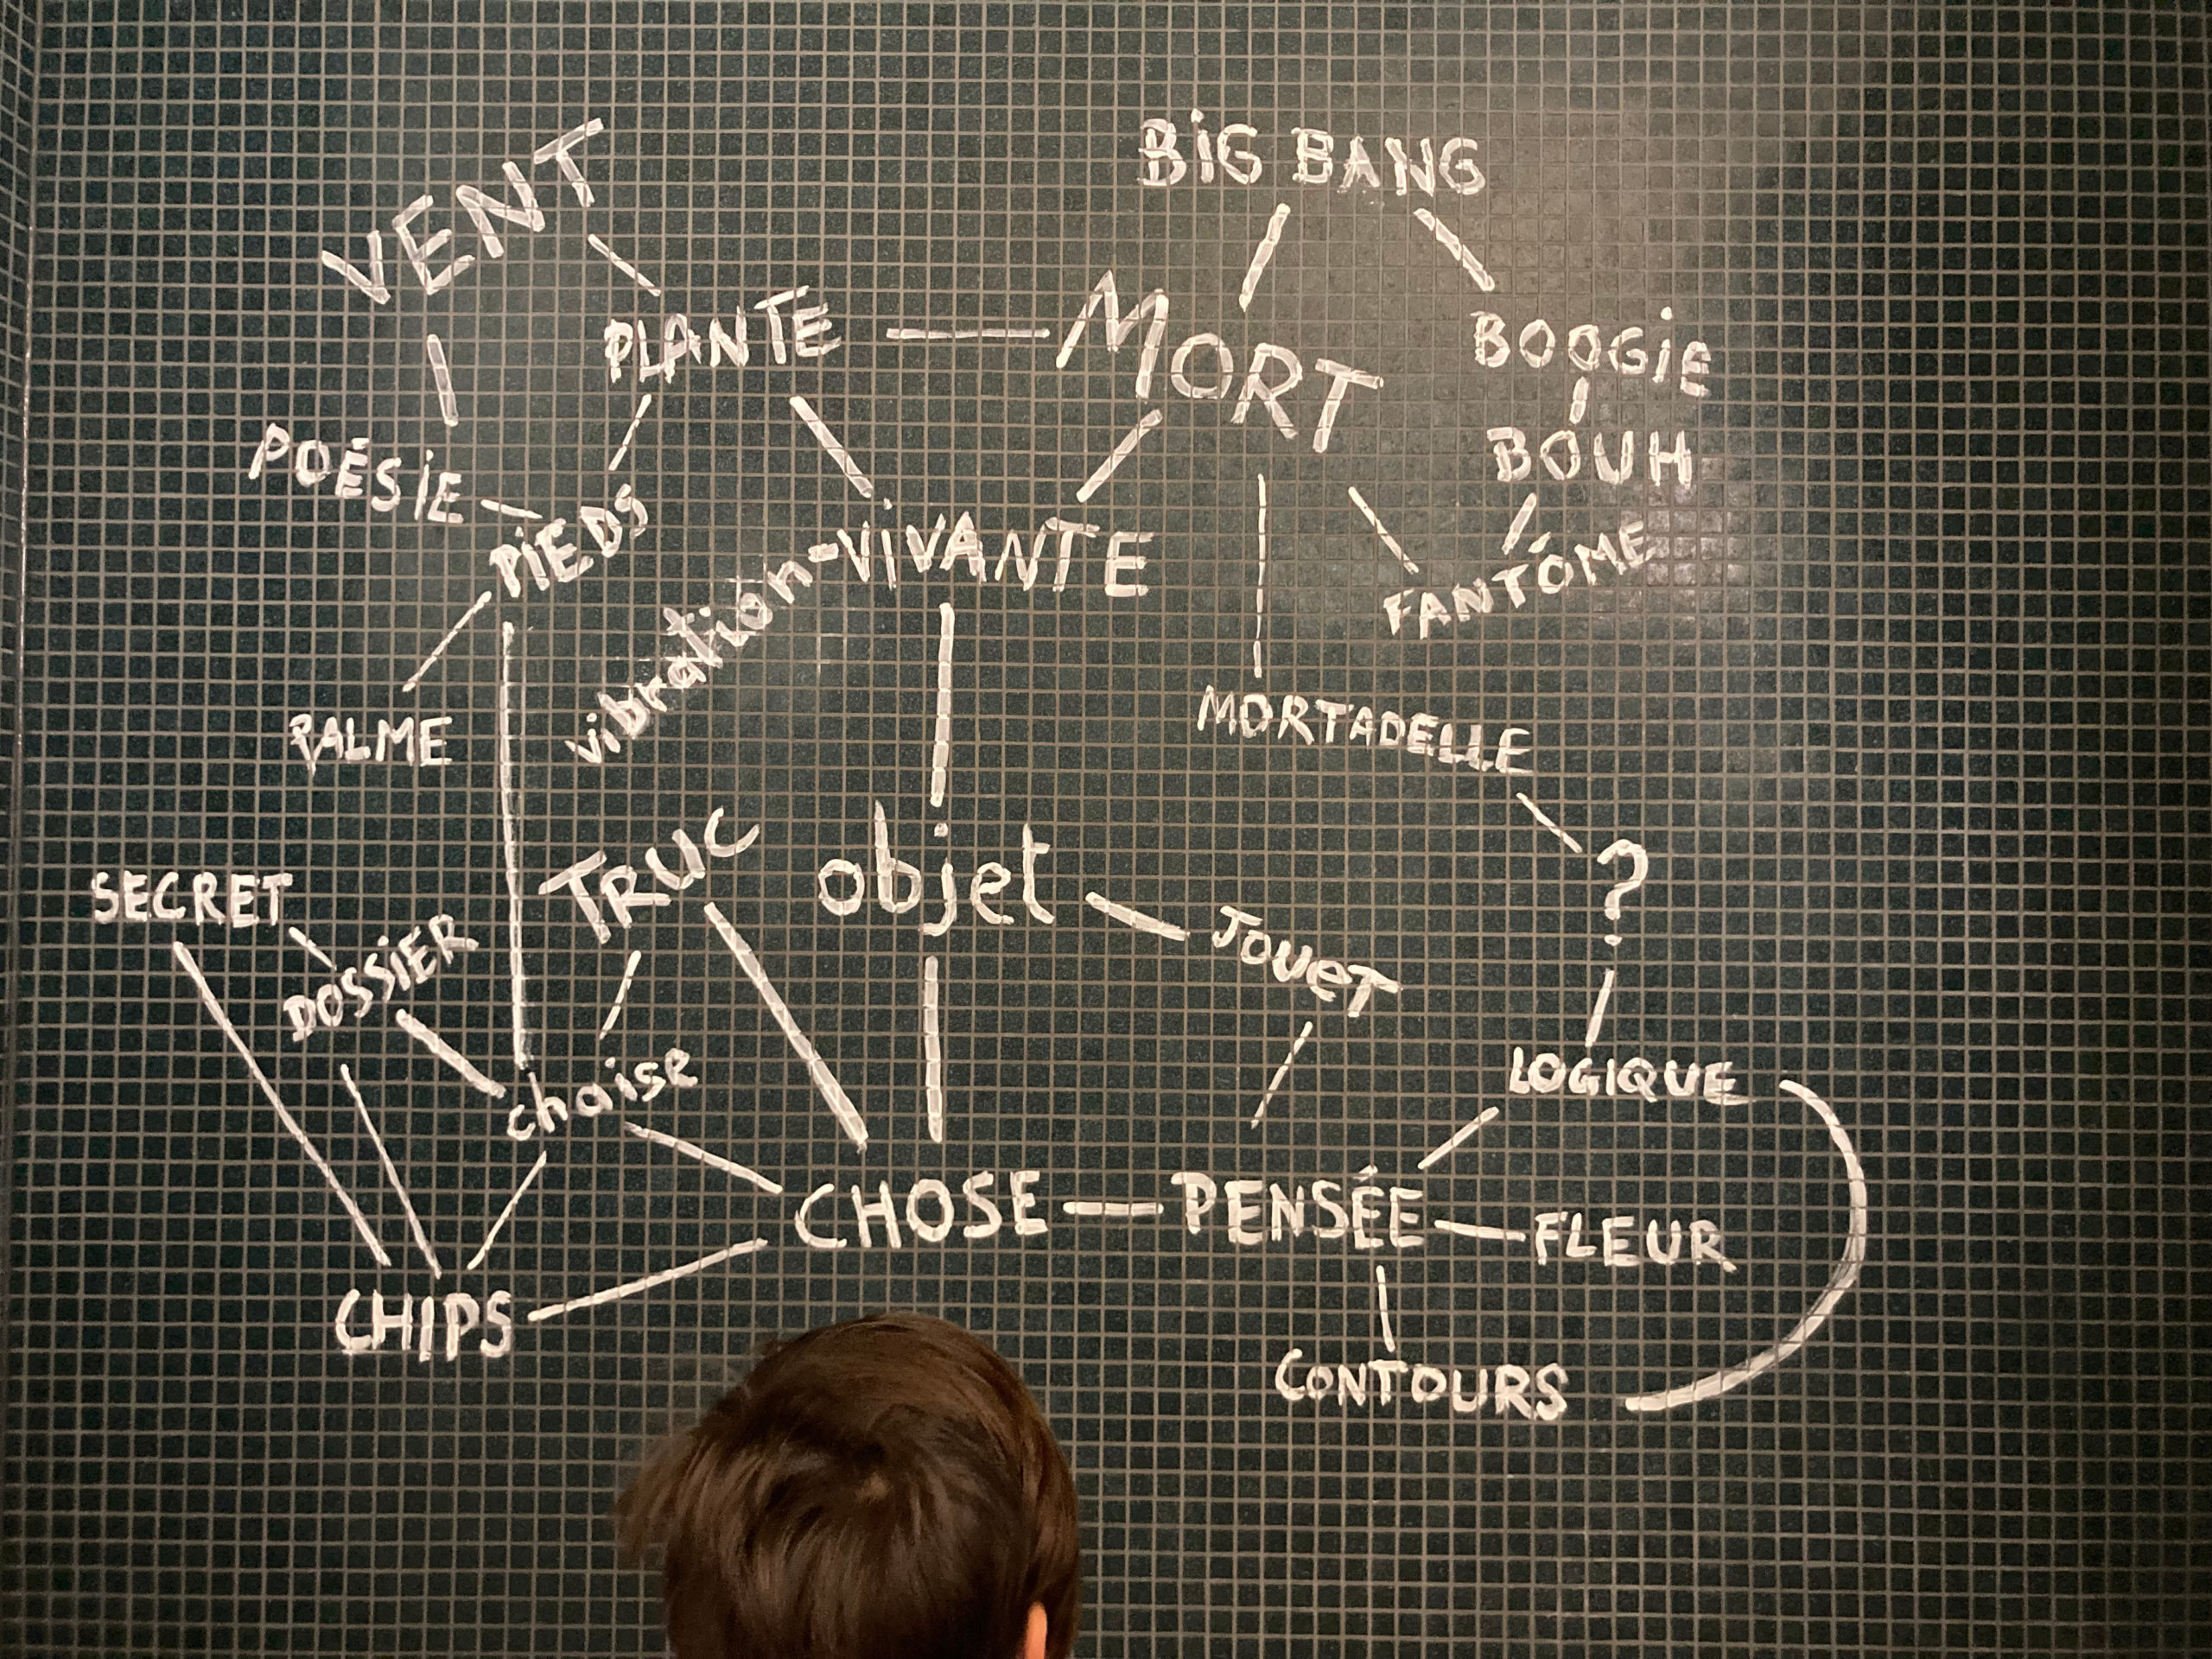 BiG BANG
VENT
PLANTE
MORT
BOOGiE
POÉSiE
BOUH
PiEDS
vibration-ViVANTE
FANTÔME
PALME
MORTADELLE
TRUC
objet
?
SECRET
DOSSiER
JOUeT
chaise
LOGIQUE
CHOSE
PENSÉE
FLEUR
CHIPS
CONTOURS